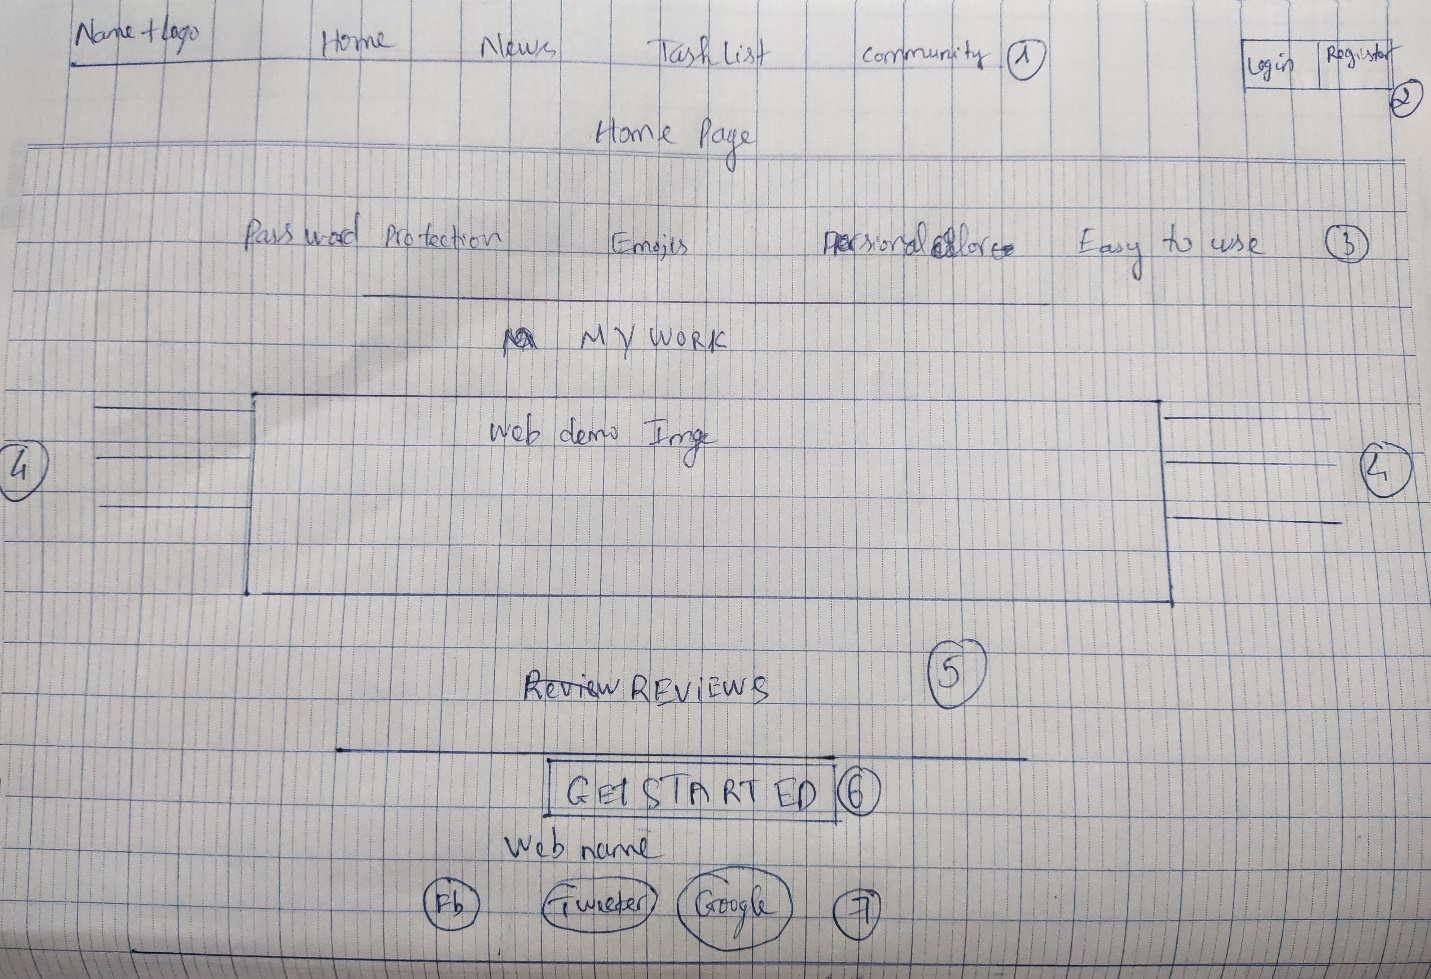 Name + logo Home News Task List Community 1 Login Register 2
Home Page
Password Protection Emojis Easy to use 3
MY WORK
4 Web demo Imge 4
Review REVIEWS 5
GET STARTED 6
Web name
Fb Tweeter Google 7